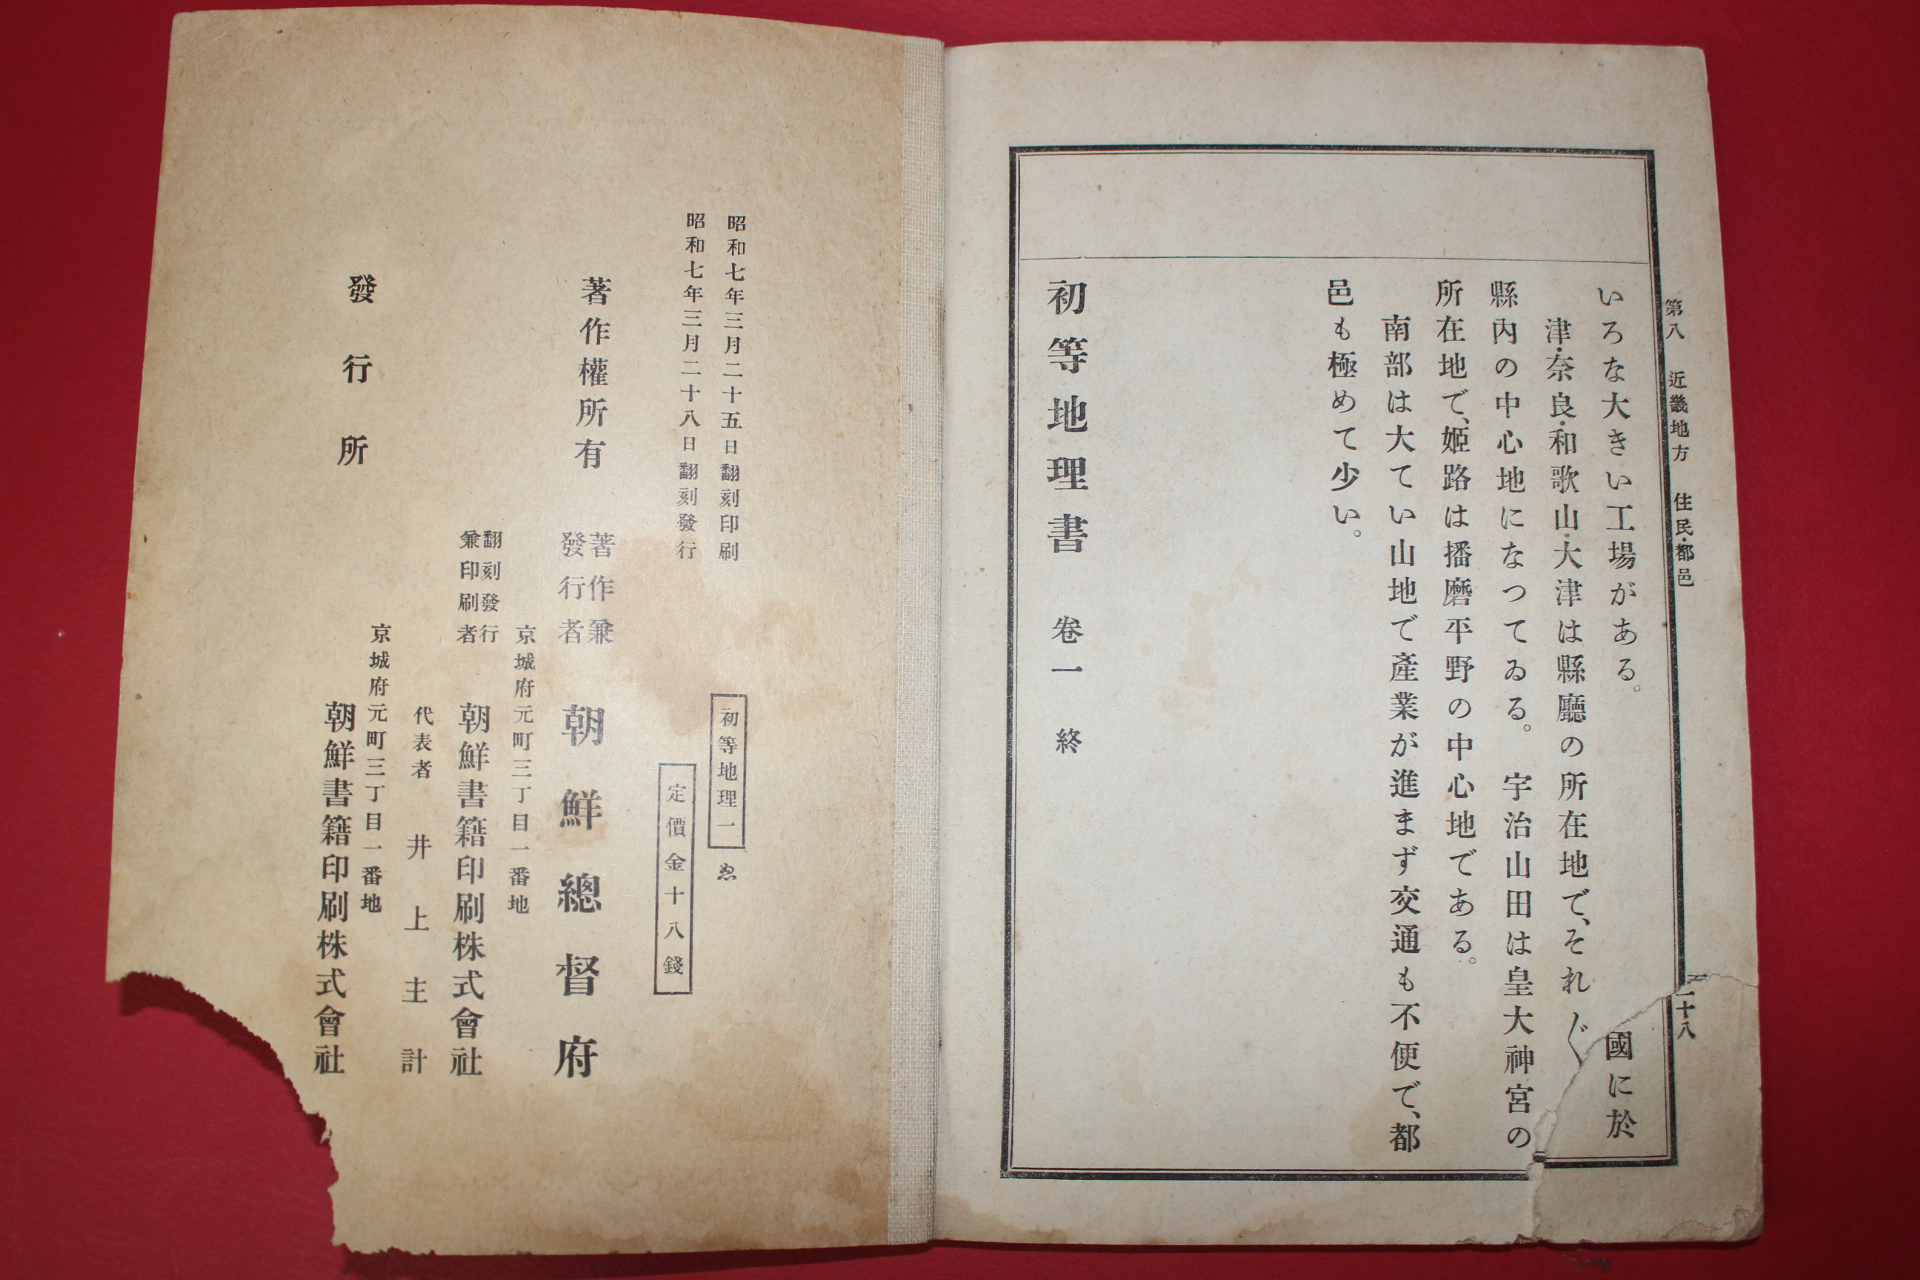 第八 近畿地方 住民・都邑 十八
いろな大きい工場がある。
國に於
津・奈良・和歌山・大津は縣廳の所在地で、それ〴〵
縣內の中心地になつてゐる。 宇治山田は皇大神宮の
所在地で、姬路は播磨平野の中心地である。
南部は大てい山地で產業が進まず交通も不便で、都
邑も極めて少い。
初等地理書 卷一 終
昭和七年三月二十五日翻刻印刷
昭和七年三月二十八日翻刻發行
初等地理一
ゑ
定價金十八錢
著作權所有
著作兼
發行者
朝鮮總督府
京城府元町三丁目一番地
翻刻發行
兼印刷者
朝鮮書籍印刷株式會社
代表者 井上主計
京城府元町三丁目一番地
發行所
朝鮮書籍印刷株式會社